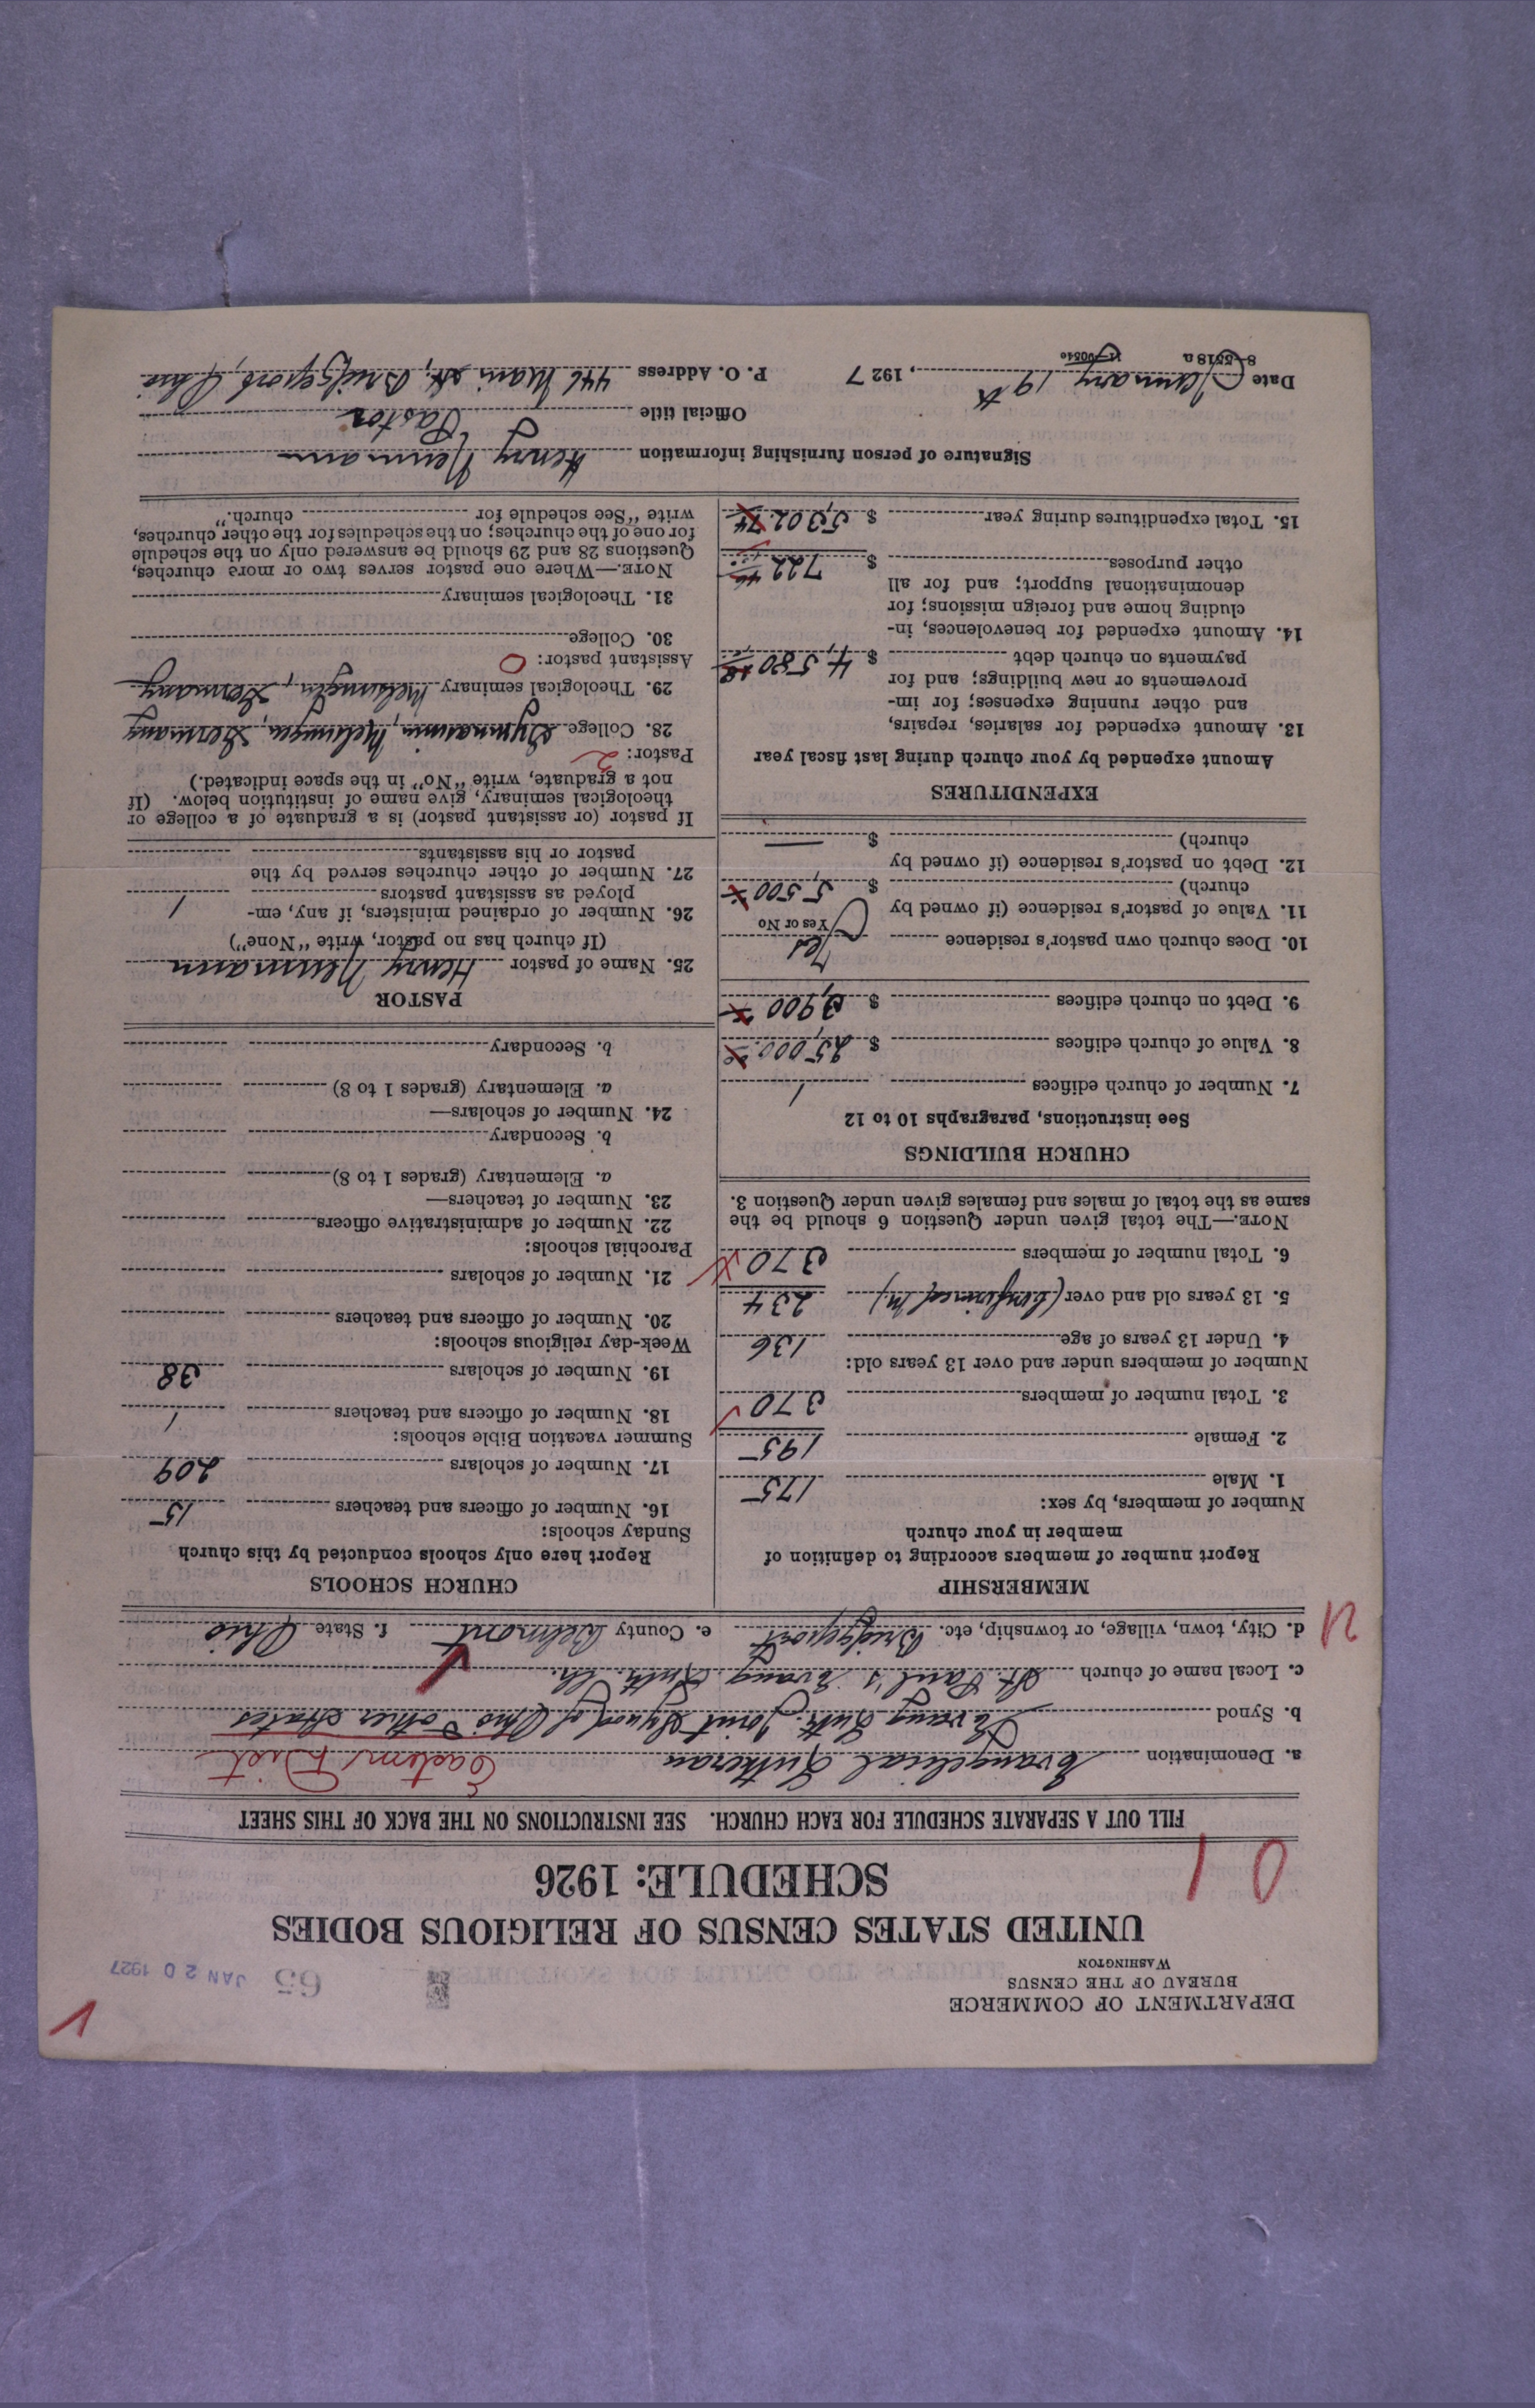 DEPARTMENT OF COMMERCE
BUREAU OF THE CENSUS
WASHINGTON
65 JAN 20 1927
UNITED STATES CENSUS OF RELIGIOUS BODIES
SCHEDULE: 1926
0 1
FILL OUT A SEPARATE SCHEDULE FOR EACH CHURCH. SEE INSTRUCTIONS ON THE BACK OF THIS SHEET
a. Denomination Evangelical Lutheran Eastern Dist
b. Synod Evang. Luth. Joint Synod of Ohio & other States
c. Local name of church St. Paul's Evang. Luth. Ch.
d. City, town, village, or township, etc. Bridgeport e. County Belmont f. State Ohio
MEMBERSHIP
Report number of members according to definition of
member in your church
Number of members, by sex:
1. Male 175
2. Female 195
3. Total number of members 370
Number of members under and over 13 years old:
4. Under 13 years of age 136
5. 13 years old and over (Confirmed M.) 234
6. Total number of members 370
NOTE.—The total given under Question 6 should be the
same as the total of males and females given under Question 3.
CHURCH BUILDINGS
See instructions, paragraphs 10 to 12
7. Number of church edifices 1
8. Value of church edifices $ 25,000
9. Debt on church edifices $ 3,900
10. Does church own pastor's residence Yes
Yes or No
11. Value of pastor's residence (if owned by
church) $ 5,500
12. Debt on pastor's residence (if owned by
church) $ —
EXPENDITURES
Amount expended by your church during last fiscal year
13. Amount expended for salaries, repairs,
and other running expenses; for im-
provements or new buildings; and for
payments on church debt $ 4,580
14. Amount expended for benevolences, in-
cluding home and foreign missions; for
denominational support; and for all
other purposes $ 722
15. Total expenditures during year $ 5,302
CHURCH SCHOOLS
Report here only schools conducted by this church
Sunday schools:
16. Number of officers and teachers 15
17. Number of scholars 209
Summer vacation Bible schools:
18. Number of officers and teachers 1
19. Number of scholars 38
Week-day religious schools:
20. Number of officers and teachers
21. Number of scholars
Parochial schools:
22. Number of administrative officers
23. Number of teachers—
a. Elementary (grades 1 to 8)
b. Secondary
24. Number of scholars—
a. Elementary (grades 1 to 8)
b. Secondary
PASTOR
25. Name of pastor Henry Neumann
(If church has no pastor, write "None")
26. Number of ordained ministers, if any, em-
ployed as assistant pastors 1
27. Number of other churches served by the
pastor or his assistants
If pastor (or assistant pastor) is a graduate of a college or
theological seminary, give name of institution below. (If
not a graduate, write "No" in the space indicated.)
Pastor: 2
28. College Gymnasium, Melsungen, Germany
29. Theological seminary Melsungen, Germany
Assistant pastor: 0
30. College
31. Theological seminary
NOTE.—Where one pastor serves two or more churches,
Questions 28 and 29 should be answered only on the schedule
for one of the churches; on the schedules for the other churches,
write "See schedule for church."
Signature of person furnishing information Henry Neumann
Official title Pastor
Date January 19th, 1927 P. O. Address 446 Main St., Bridgeport, Ohio
8-5518a